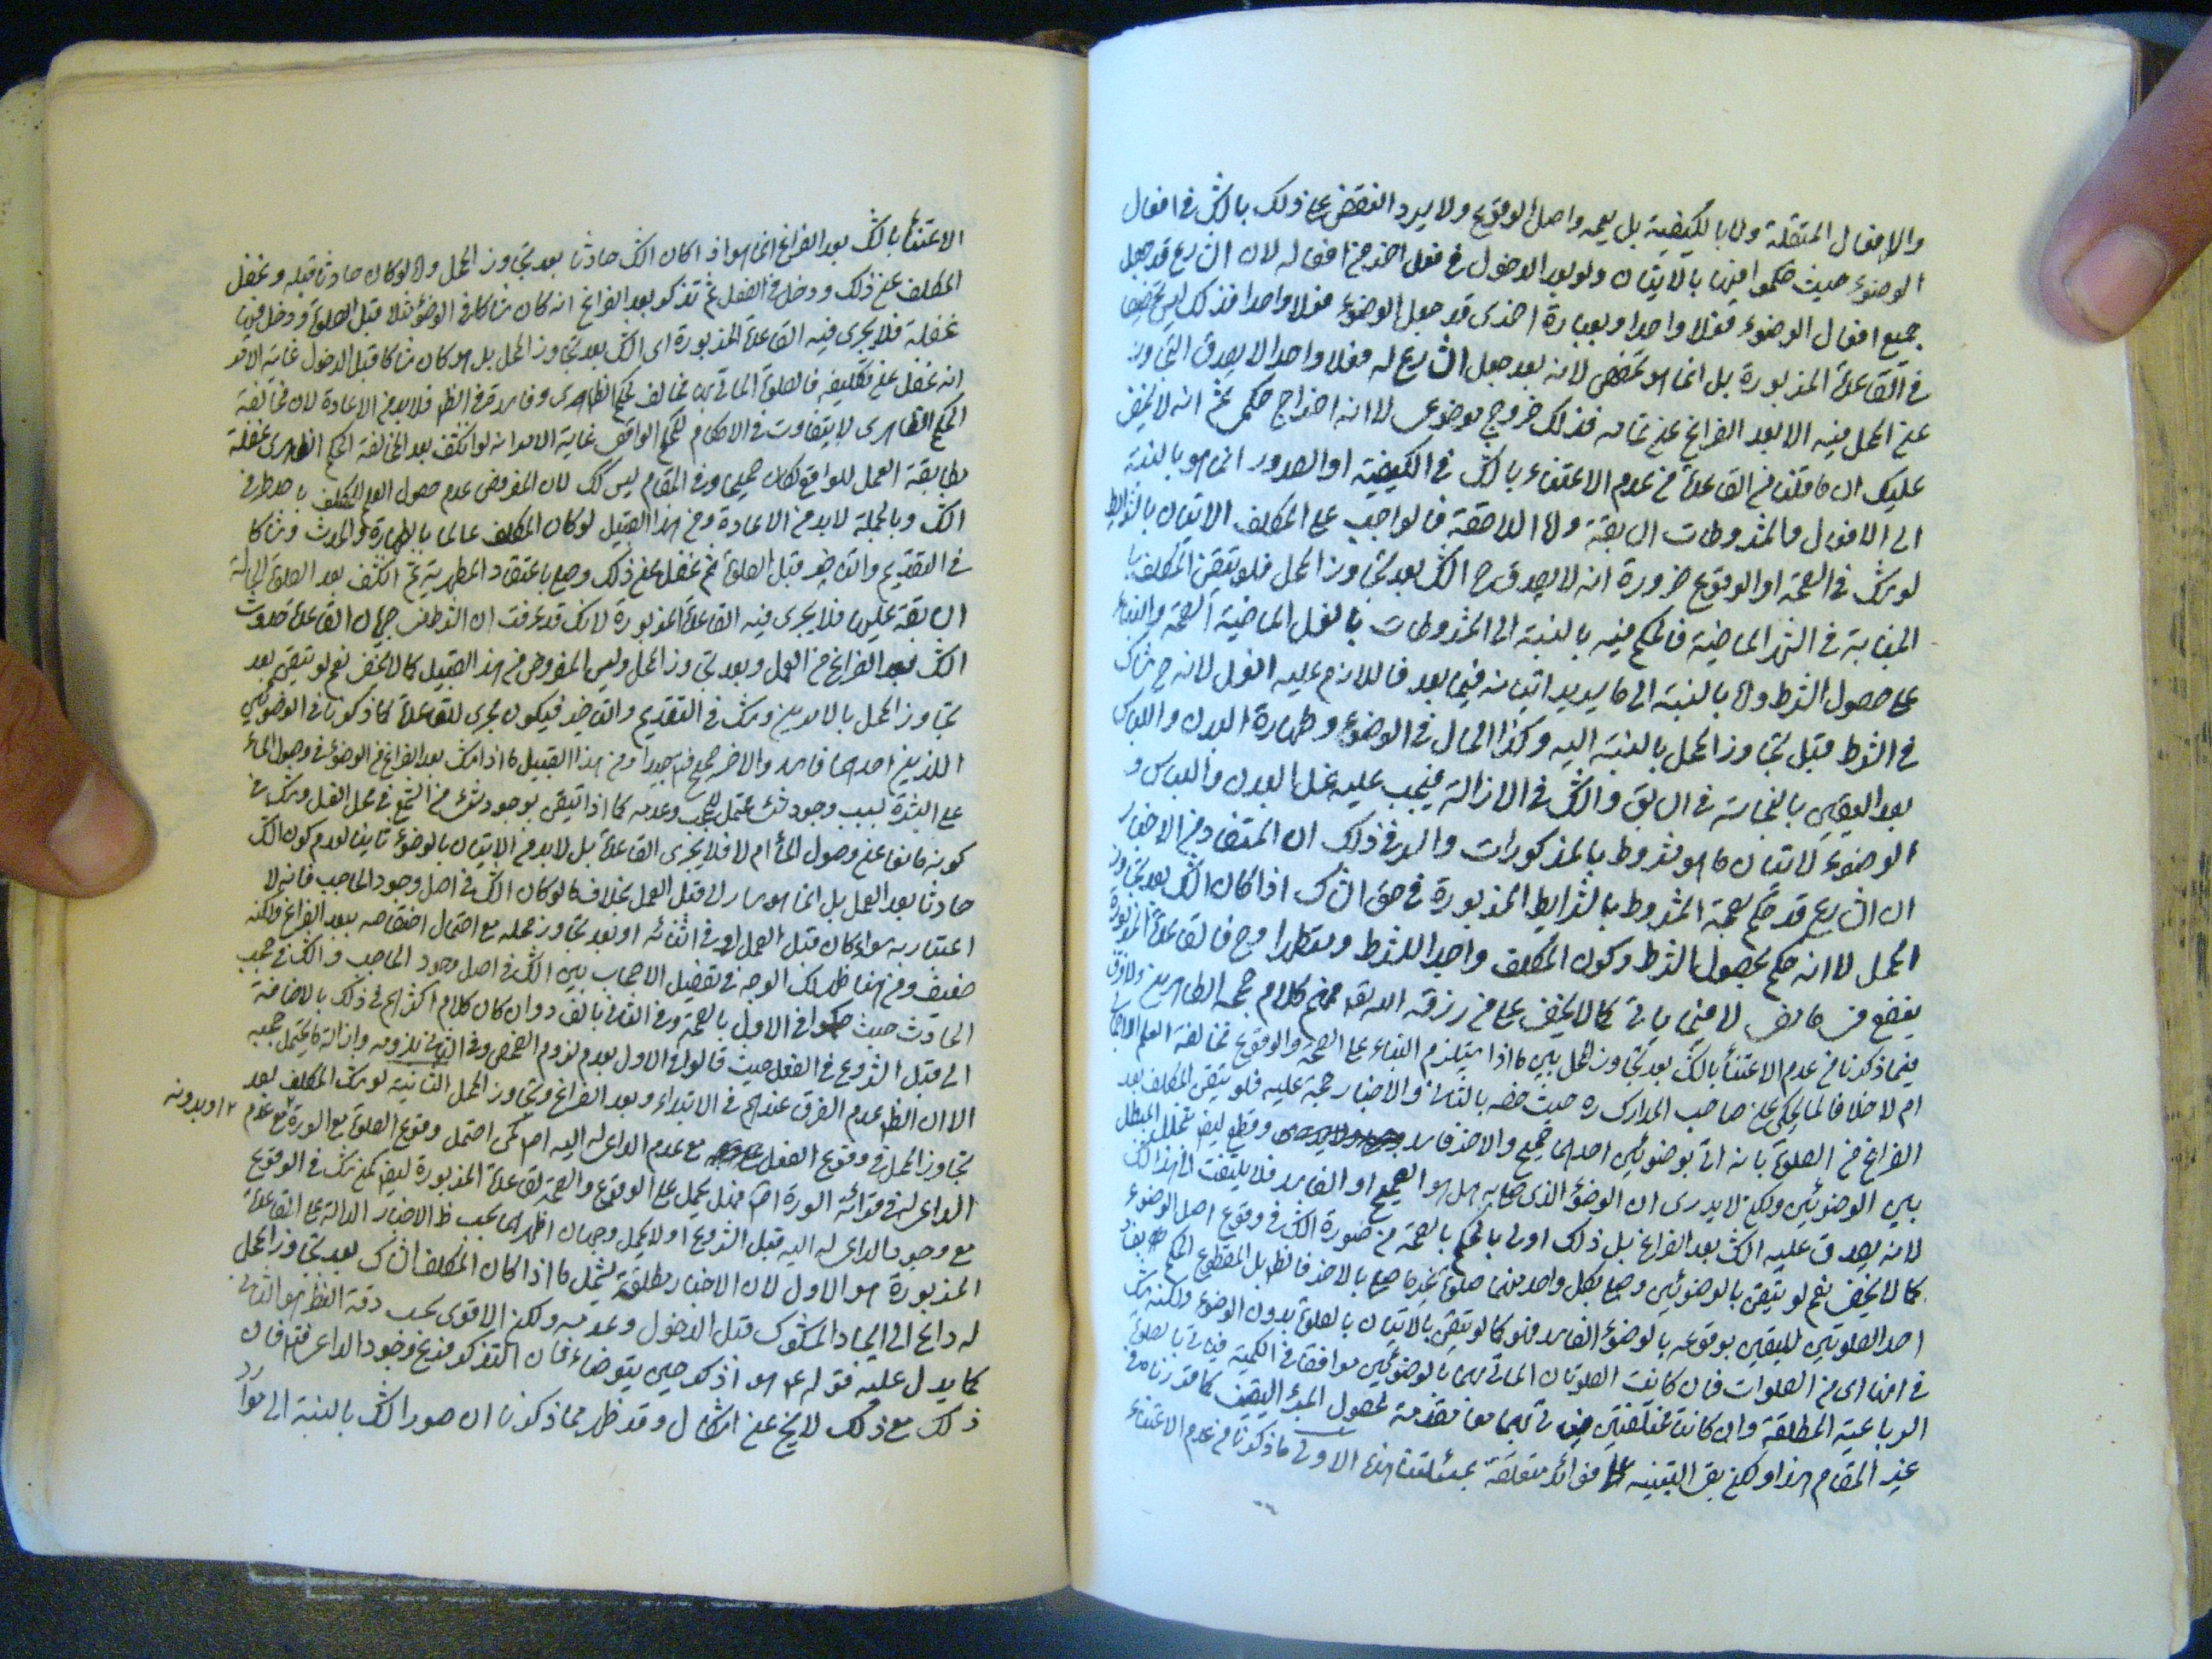 والافعال المتقلة ولا بالكيفية بل يعمه واصل الوقوع ولا يرد النقض على ذلك بالشك في افعال
الوضوء حيث حكموا فيها بالاتيان ولو بعد الدخول في فعل اخر من افعاله لان الشارع قد جعل
جميع افعال الوضوء فعلا واحدا وبعبارة اخرى قد جعل الوضوء فعلا واحدا فذلك ليس تخصيصا
في القاعدة المذبورة بل انما هو تخصص لانه بعد جعل الشارع له فعلا واحدا لا يصدق التجاوز
عن المحل فيه الا بعد الفراغ عن تمامه فذلك خروج موضوعي لا انه اخراج حكمي ثم انه لا يخفى
عليك ان ما قلنا من القاعدة من عدم الاعتناء بالشك في الكيفية او الصدور انما هو بالنسبة
الى الافعال والمشروطات السابقة واما اللاحقة فالواجب على المكلف الاتيان بالشرايط
لو شك في الصحة او الوقوع ضرورة انه لا يصدق ح الشك بعد تجاوز المحل فلو تيقن المكلف با
لجنابة في الشهر الماضية فالحكم فيه بالنسبة الى المشروطات بالغسل الماضية الصحة والبناء
على حصول الشرط واما بالنسبة الى ما يريد اتيانه فيما بعد فاللازم عليه الغسل لانه ح شاك
في الشرط قبل تجاوز المحل بالنسبة اليه وكذا الحال في الوضوء وطهارة البدن واللباس
بعد اليقين بالنجاسة في السابق والشك في الازالة فيجب عليه غسل البدن واللباس و
الوضوء لاتيان ما هو مشروط بالمذكورات والسر في ذلك ان المستفاد من الاخبار
ان الشارع قد حكم بصحة المشروط بالشرايط المذبورة في حق الشاك اذا كان الشك بعد تجاوز
المحل لا انه حكم بحصول الشرط وكون المكلف واجدا للشرط ومتطهرا وح فالقاعدة المذبورة
ينفع فيما مضى لا فيما ياتي كما لا يخفى على من رزقه الله فهم كلام حججه الطاهرين ولا فرق
فيما ذكرنا من عدم الاعتناء بالشك بعد تجاوز المحل بين ما اذا يستلزم البناء على الصحة والوقوع مخالفة العلم الاجمالي
ام لا خلافا لما يحكى عن صاحب المدارك ره حيث خصه بالثاني والاخبار حجة عليه فلو تيقن المكلف بعد
الفراغ من الصلوة بانه اتى بوضوئين احدهما صحيح والاخر فاسد وقطع ايضا بتخلل المبطل
بين الوضوئين ولكن لا يدري ان الوضوء الذي صلى به هل هو الصحيح او الفاسد فلا يلتفت الى هذا الشك
لانه يصدق عليه الشك بعد الفراغ بل ذلك اولى بالحكم بالصحة من صورة الشك في وقوع اصل الوضوء
كما لا يخفى نعم لو تيقن بالوضوئين وصلى بكل واحد منهما صلوة غير ما صلى بالاخر فالظ بل المقطوع الحكم بفساد
احد الصلوتين لليقين بوقوعه بالوضوء الفاسد فهو كما لو تيقن بالاتيان بالصلوة بدون الوضوء ولكنه شك
في انها اي من الصلوات فان كانت الصلوتان الماتي بهما بالوضوئين موافقا في الكمية فياتي بالصلوة
الرباعية المطلقة وان كانتا مختلفتين فياتي بهما معا مقدمة لحصول البرائة اليقينية كما قررنا في
غير المقام هذا ولكن بقي التنبيه على فوائد متعلقة بمسئلتنا هذه الاولى ما ذكرنا من عدم الاعتناء
الاعتناء بالشك بعد الفراغ انما هو اذا كان الشك حادثا بعد تجاوز المحل واما لو كان حادثا قبله وغفل
المكلف عن ذلك ودخل في الفعل ثم تذكر بعد الفراغ انه كان شاكا في الوضوء مثلا قبل الصلوة ودخل فيها
غفلة فلا يجري فيه القاعدة المذبورة اي الشك بعد تجاوز المحل بل هو كان شاكا قبل الدخول غاية الامر
انه غفل عن تكليفه فالصلوة الماتي بها مخالف لحكم الظاهري وفاسدة في الظ فلا بد من الاعادة لان مخالفة
الحكم الظاهري لا يتفاوت في الاحكام للحكم الواقعي غاية الامر انه لو انكشف بعد المخالفة الحكم الظاهري غفلة
مطابقة العمل للواقع لكان صحيحا وفي المقام ليس كك لان المفروض عدم حصول العلم للمكلف باحد طرفي
الشك وبالجملة لا بد من الاعادة ومن هذا القبيل لو كان المكلف عالما بالطهارة والحدث وشاكا
في التقديم والتاخير قبل الصلوة ثم غفل عن ذلك وصلى باعتقاد المطهرية ثم انكشف بعد الصلوة الحالة
السابقة عليها فلا يجري فيه القاعدة المذبورة لانك قد عرفت ان الشرط في جريان القاعدة حدوث
الشك بعد الفراغ من العمل وبعد تجاوز المحل وليس المفروض من هذا القبيل كما لا يخفى نعم لو تيقن بعد
تجاوز المحل بالامرين وشك في التقديم والتاخير فيكون مجرى للقاعدة كما ذكرنا في الوضوئين
اللذين احدهما فاسد والاخر صحيح جيدا ومن هذا القبيل ما اذا شك بعد الفراغ من الوضوء في وصول الماء
على البشرة بسبب وجود شيء محتمل الحجب وعدمه كما اذا تيقن بوجود شيء من الشمع في محل الغسل وشك في
كونه مانعا عن وصول الماء ام لا فلا يجري القاعدة بل لا بد من الاتيان بالوضوء ثانيا لعدم كون الشك
حادثا بعد العمل بل انما هو سار الى قبل العمل بخلاف ما لو كان الشك في اصل وجود الحاجب فانه لا
اعتبار به سواء كان قبل العمل او في اثنائه او بعد تجاوز محله مع احتمال اختصاصه ببعد الفراغ ولكنه
ضعيف ومن هنا ظهر لك الوجه في تفصيل الاصحاب بين الشك في اصل وجود الحاجب والشك في حجب
الحادث حيث حكموا في الاول بالصحة وفي الثاني بالفساد وان كان كلام اكثرهم في ذلك بالاضافة
الى قبل الشروع في الفعل حيث قالوا في الاول بعدم لزوم الفحص وفي الثاني بلزومه وازالة ما يحتمل حجبه
الا ان الظ عدم الفرق عندهم في الابتداء وبعد الفراغ وتجاوز المحل الثانية لو شك المكلف بعد
تجاوز المحل في وقوع الفعل مع عدم الداعي له اليه اصلا كمن احتمل وقوع الصلوة مع السورة مع عدم
٢ او بدونه
الداعي له في قرائة السورة اصلا فهل يحمل على الوقوع والصحة لقاعدة المذبورة ايضا كمن شك في الوقوع
مع وجود الداعي له اليه قبل الشروع او لا يحمل وجهان اظهرهما بحسب ظ الاخبار الدالة على القاعدة
المذبورة هو الاول لان الاخبار مطلقة يشمل ما اذا كان المكلف الشاك بعد تجاوز المحل
له داع الى ايجاد المشكوك قبل الدخول وعدمه ولكن الاقوى بحسب دقة النظر هو الثاني
كما يدل عليه قوله ع هو اذكر حين يتوضاء فان التذكر فرع وجود الداعي فتم فان
ذلك مع ذلك لا يخ عن اشكال وقد ظهر مما ذكرنا ان صور الشك بالنسبة الى موارد